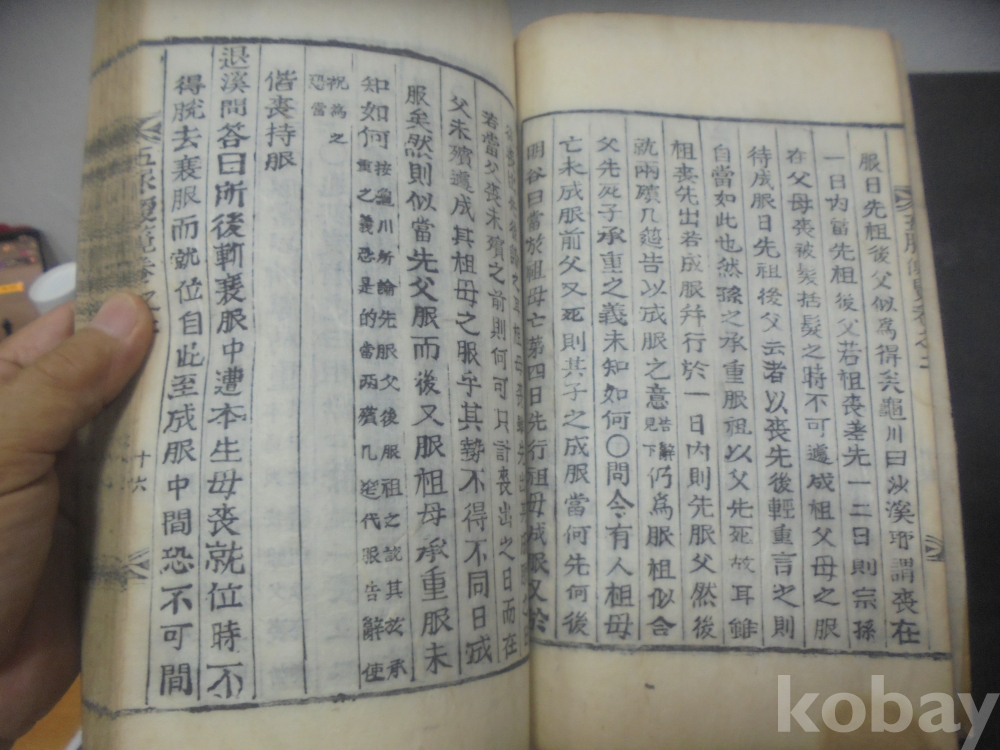 服日先祖後父似爲得矣龜川曰沙溪所謂喪在
一日內當先祖後父若祖喪差先一二日則宗孫
在父母喪被髮括髮之時不可遽成祖父母之服
待成服日先祖後父云者以喪先後輕重言之則
自當如此也然孫之承重服祖以父先死故耳雖
祖喪先出若成服幷行於一日內則先服父然後
就兩殯几筵告以成服之意告辭見下仍爲服祖似合
父先死子承重之義未知如何〇問今有人祖母
亡未成服前父又死則其子之成服當何先何後
明谷曰當於祖母亡第四日先行祖母成服又於
若當父喪未殯之前則何可只計喪出之日而在
父未殯遽成其祖母之服乎其勢不得不同日成
服矣然則似當先父服而後又服祖母承重服未
知如何按龜川所論先服父後服祖之說其於承重之義恐是的當兩殯几筵代服告辭使
祝爲之恐當
偕喪持服
退溪問答曰所後斬衰服中遭本生母喪就位時不
得脫去衰服而就位自此至成服中間恐不可間
五服便覽卷之
十六
kobay